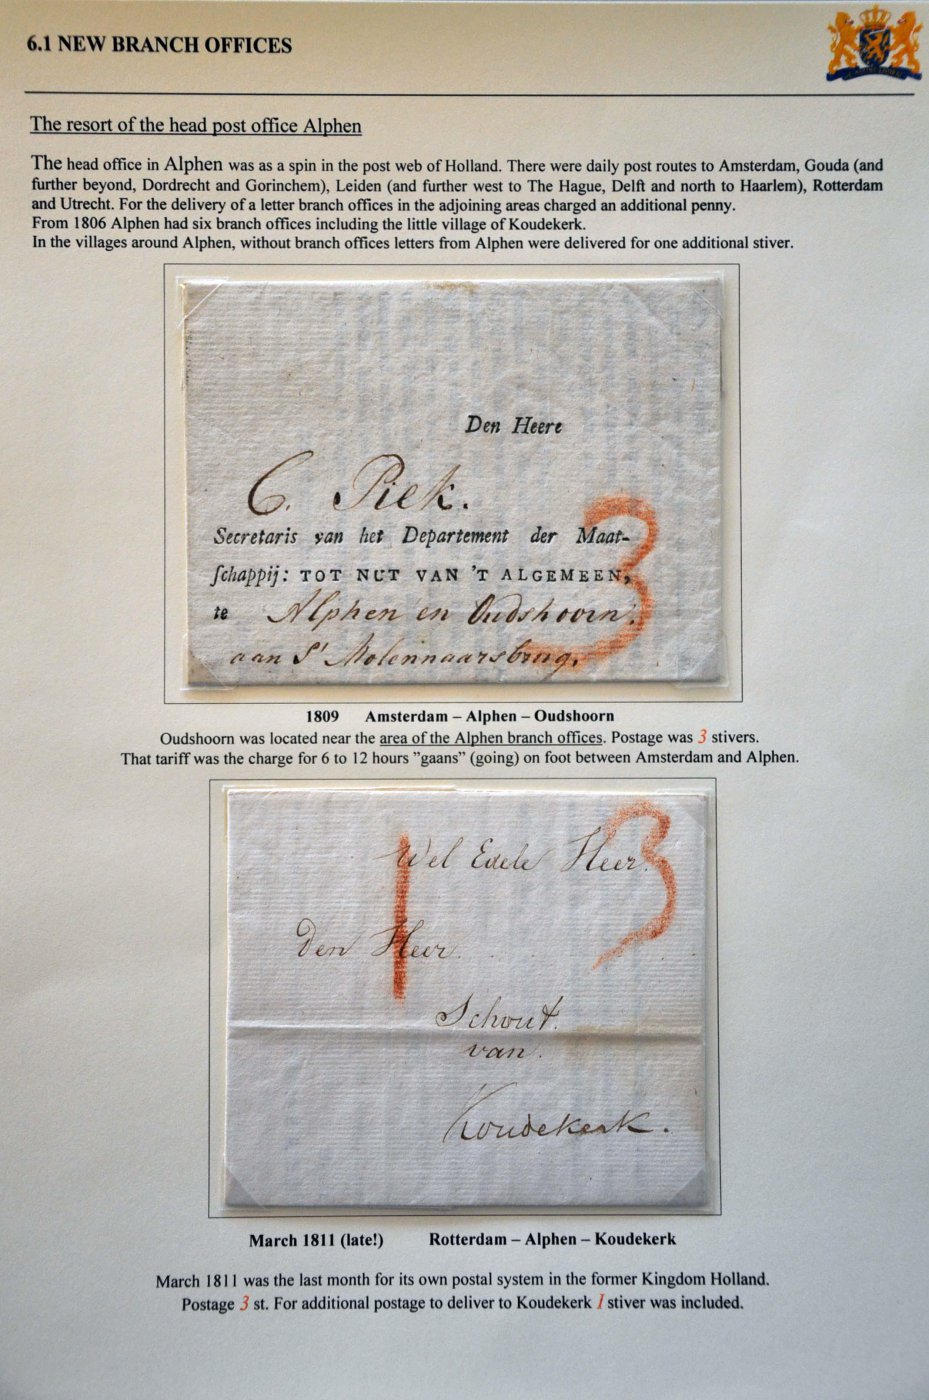 6.1 NEW BRANCH OFFICES
The resort of the head post office Alphen
The head office in Alphen was as a spin in the post web of Holland. There were daily post routes to Amsterdam, Gouda (and
further beyond, Dordrecht and Gorinchem), Leiden (and further west to The Hague, Delft and north to Haarlem), Rotterdam
and Utrecht. For the delivery of a letter branch offices in the adjoining areas charged an additional penny.
From 1806 Alphen had six branch offices including the little village of Koudekerk.
In the villages around Alphen, without branch offices letters from Alphen were delivered for one additional stiver.
Den Heere
C. Piek.
Secretaris van het Departement der Maat-
ſchappij: TOT NUT VAN 'T ALGEMEEN,
te Alphen en Oudshoorn.
aan S' Molennaarsbrug.
3
1809 Amsterdam – Alphen – Oudshoorn
Oudshoorn was located near the area of the Alphen branch offices. Postage was 3 stivers.
That tariff was the charge for 6 to 12 hours ”gaans” (going) on foot between Amsterdam and Alphen.
1 3
Wel Edele Heer.
Den Heer.
Schout.
van.
Koudekerk.
March 1811 (late!) Rotterdam – Alphen – Koudekerk
March 1811 was the last month for its own postal system in the former Kingdom Holland.
Postage 3 st. For additional postage to deliver to Koudekerk 1 stiver was included.